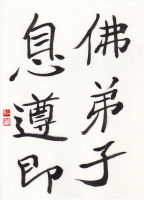 佛弟子
息遵即